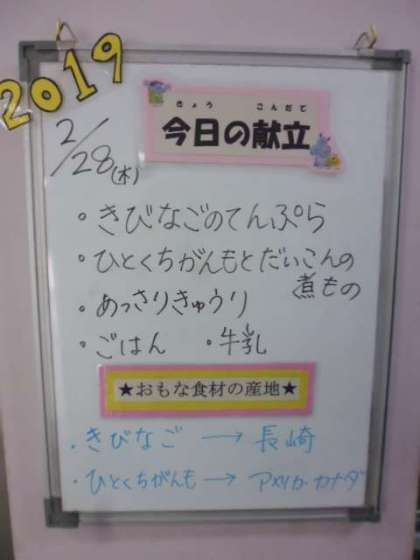 2019
2/28(木)
きょう こんだて
今日の献立
・きびなごのてんぷら
・ひとくちがんもとだいこんの
煮もの
・あっさりきゅうり
・ごはん ・牛乳
★おもな食材の産地★
・きびなご → 長崎
・ひとくちがんも → アメリカ・カナダ